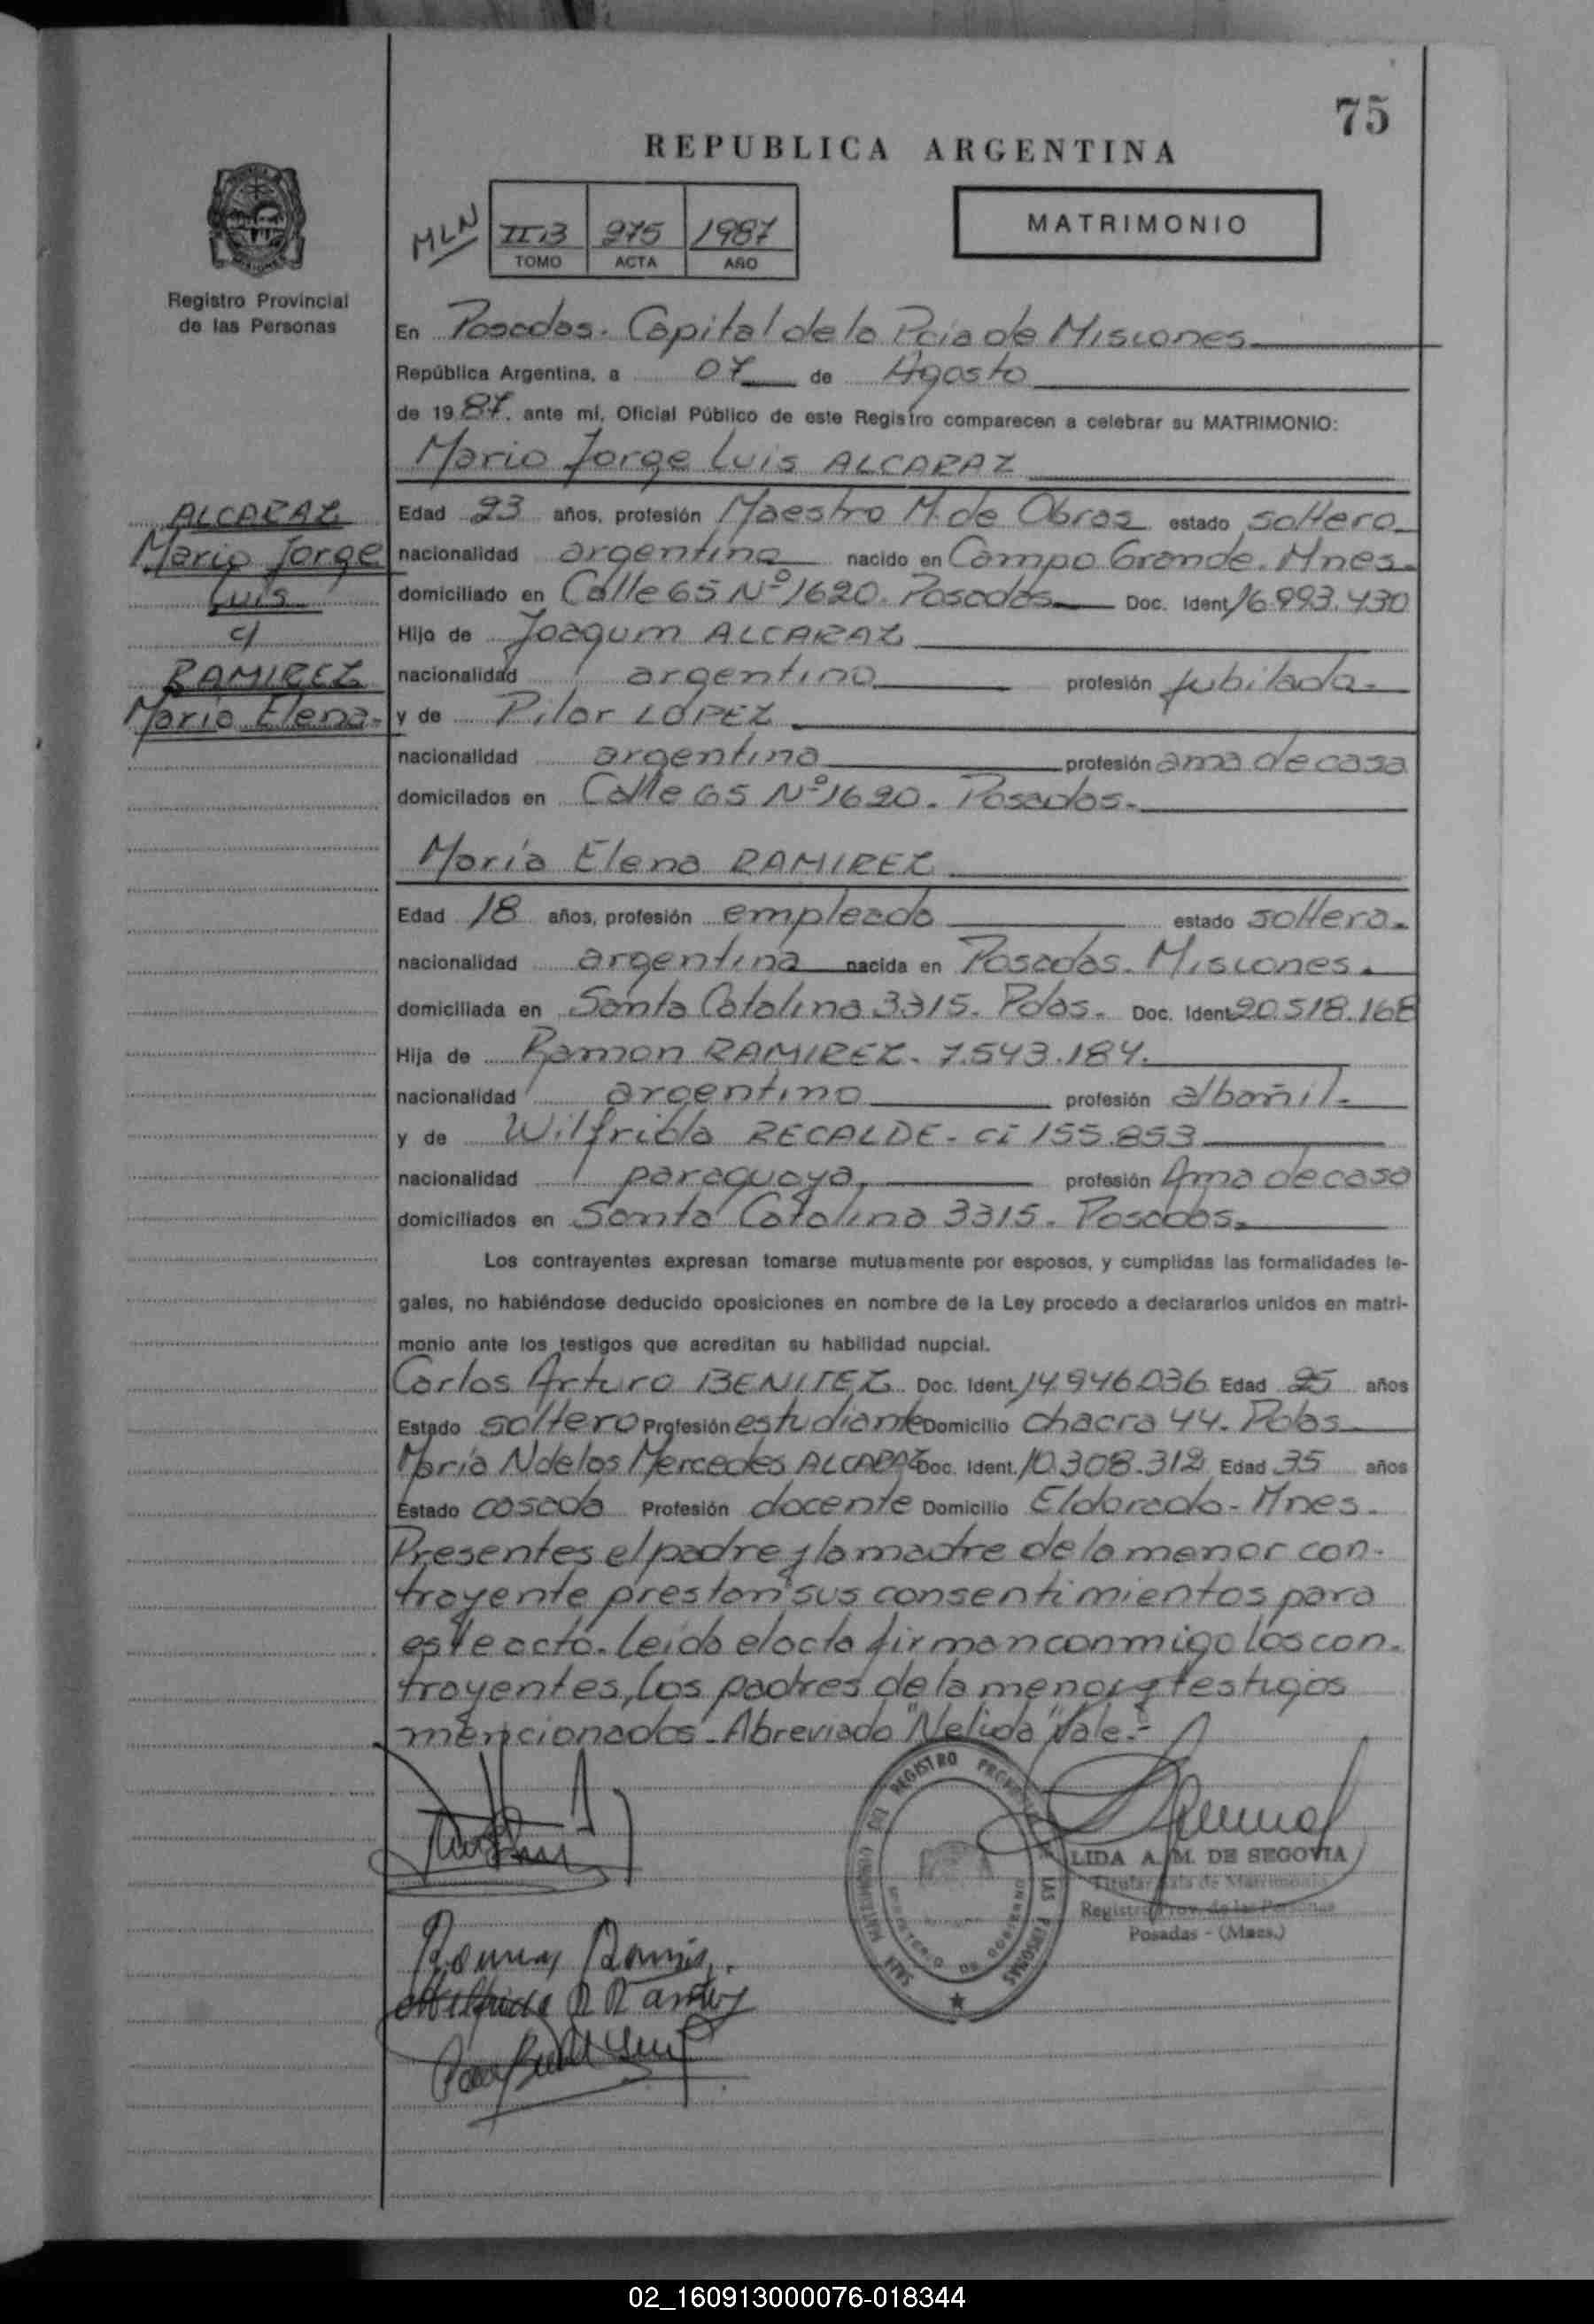 75
REPUBLICA ARGENTINA
MLN
II B 275 1987
TOMO ACTA AÑO
MATRIMONIO
Registro Provincial
de las Personas
En Posadas. Capital de la Pcia de Misiones
República Argentina, a 07 de Agosto
de 1987. ante mí, Oficial Público de este Registro comparecen a celebrar su MATRIMONIO:
Mario Jorge Luis ALCARAZ
ALCARAZ
Mario Jorge
Luis
c/
RAMIREZ
María Elena-
Edad 23 años, profesión Maestro M. de Obras estado soltero
nacionalidad argentina nacido en Campo Grande. Mnes.
domiciliado en Calle 65 Nº 1620. Posadas Doc. Ident 16.993.430
Hijo de Joaquim ALCARAZ
nacionalidad argentino profesión Jubilado.
y de Pilar LOPEZ
nacionalidad argentina profesión ama de casa
domicilados en Calle 65 Nº 1620. Posadas.
María Elena RAMIREZ
Edad 18 años, profesión empleada estado soltera.
nacionalidad argentina nacida en Posadas. Misiones.
domiciliada en Santa Catalina 3315. Pdas. Doc. Ident 20.518.168
Hija de Ramon RAMIREZ. 7.543.184.
nacionalidad argentino profesión albañil.
y de Wilfrida RECALDE. CI 155.853
nacionalidad paraguaya, profesión Ama de casa
domiciliados en Santa Catalina 3315. Posadas.
Los contrayentes expresan tomarse mutuamente por esposos, y cumplidas las formalidades le-
gales, no habiéndose deducido oposiciones en nombre de la Ley procedo a declararlos unidos en matri-
monio ante los testigos que acreditan su habilidad nupcial.
Carlos Arturo BENITEZ Doc. Ident. 14.946.036 Edad 25 años
Estado soltero Profesión estudiante Domicilio chacra 44. Pdas
María N de las Mercedes ALCARAZ Doc. Ident. 10.308.312 Edad 35 años
Estado casada Profesión docente Domicilio Eldorado-Mnes.
Presentes el padre y la madre de la menor con-
trayente prestan sus consentimientos para
este acto. Leída el acta firman conmigo los con-
trayentes, los padres de la menor y testigos
mencionados. Abreviado "Nelida" Vale.-
REGISTRO LAS PERSONAS
MINISTERIO DE GOBIERNO
LIDA A. M. DE SEGOVIA
Titular Sala de Matrimonio
Registro Prov. de las Personas
Posadas - (Mnes.)
02_160913000076-018344